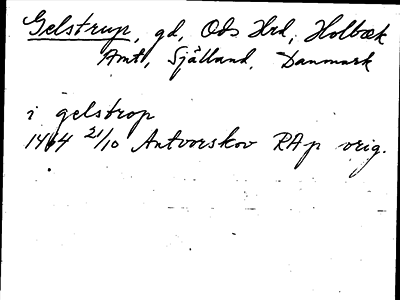 Gelstrup, gd, Ods Hrd, Holbæk
Amt, Sjålland, Danmark
i gelstrop
1464 21/10 Antvorskov RAp orig.